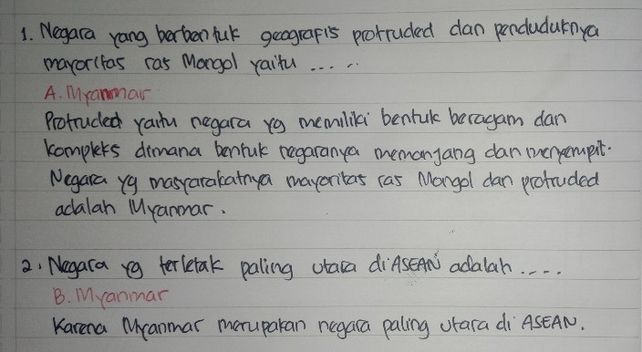 1. Negara yang berbentuk geografis protruded dan penduduknya
mayoritas ras Mongol yaitu .....
A. Myanmar
Protruded yaitu negara yg memiliki bentuk beragam dan
kompleks dimana bentuk negaranya memanjang dan menyempit.
Negara yg masyarakatnya mayoritas ras Mongol dan protruded
adalah Myanmar.
2. Negara yg terletak paling utara di ASEAN adalah ....
B. Myanmar
Karena Myanmar merupakan negara paling utara di ASEAN.